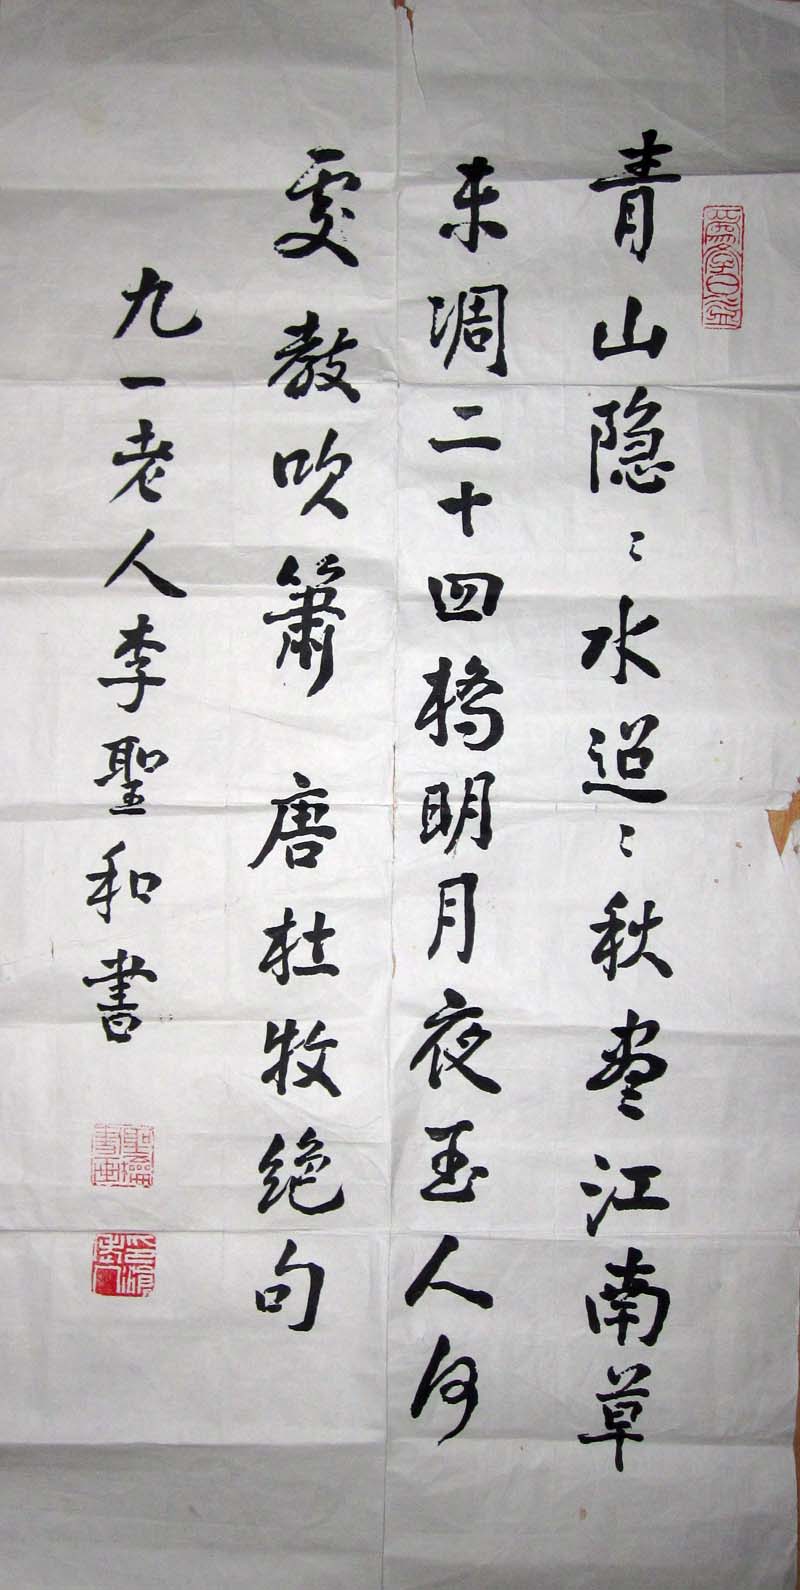 青山隐〻水迢〻秋尽江南草
未凋二十四橋明月夜玉人何
處教吹簫 唐杜牧絶句
九一老人李聖和書